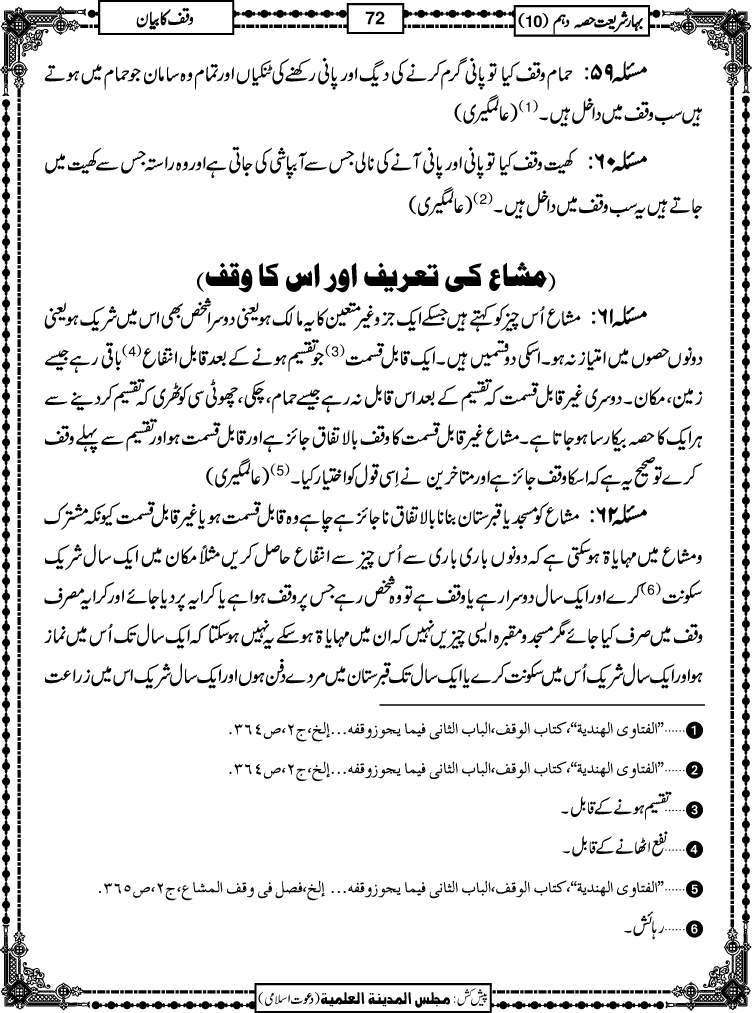 بہارشریعت حصہ دہم (10)
72
وقف کا بیان
مسئلہ ۵۹: حمام وقف کیا تو پانی گرم کرنے کی دیگ اور پانی رکھنے کی ٹنکیاں اور تمام وہ سامان جو حمام میں ہوتے
ہیں سب وقف میں داخل ہیں۔(1) (عالمگیری)
مسئلہ ۶۰: کھیت وقف کیا تو پانی اور پانی آنے کی نالی جس سے آبپاشی کی جاتی ہے اور وہ راستہ جس سے کھیت میں
جاتے ہیں یہ سب وقف میں داخل ہیں۔(2) (عالمگیری)
(مشاع کی تعریف اور اس کا وقف)
مسئلہ ۶۱: مشاع اُس چیز کو کہتے ہیں جسکے ایک جزو غیر متعین کا یہ مالک ہو یعنی دوسرا شخص بھی اس میں شریک ہو یعنی
دونوں حصوں میں امتیاز نہ ہو۔ اسکی دو قسمیں ہیں۔ ایک قابل قسمت(3) جو تقسیم ہونے کے بعد قابل انتفاع(4) باقی رہے جیسے
زمین، مکان۔ دوسری غیر قابل قسمت کہ تقسیم کے بعد اس قابل نہ رہے جیسے حمام، چکی، چھوٹی سی کوٹھری کہ تقسیم کر دینے سے
ہر ایک کا حصہ بیکار سا ہو جاتا ہے۔ مشاع غیر قابل قسمت کا وقف بالاتفاق جائز ہے اور قابل قسمت ہو اور تقسیم سے پہلے وقف
کرے تو صحیح یہ ہے کہ اسکا وقف جائز ہے اور متاخرین نے اِسی قول کو اختیار کیا۔(5) (عالمگیری)
مسئلہ ۶۲: مشاع کو مسجد یا قبرستان بنانا بالاتفاق ناجائز ہے چاہے وہ قابل قسمت ہو یا غیر قابل قسمت کیونکہ مشترک
و مشاع میں مہایاۃ ہو سکتی ہے کہ دونوں باری باری سے اُس چیز سے انتفاع حاصل کریں مثلاً مکان میں ایک سال شریک
سکونت(6) کرے اور ایک سال دوسرا رہے یا وقف ہے تو وہ شخص رہے جس پر وقف ہوا ہے یا کرایہ پر دیا جائے اور کرایہ مصرف
وقف میں صرف کیا جائے مگر مسجد و مقبرہ ایسی چیزیں نہیں کہ ان میں مہایاۃ ہو سکے یہ نہیں ہو سکتا کہ ایک سال تک اُس میں نماز
ہو اور ایک سال شریک اُس میں سکونت کرے یا ایک سال تک قبرستان میں مردے دفن ہوں اور ایک سال شریک اس میں زراعت
1 ......"الفتاوی الھندیة"، کتاب الوقف، الباب الثانی فیما یجوز وقفه...إلخ، ج٢، ص٣٦٤.
2 ......"الفتاوی الھندیة"، کتاب الوقف، الباب الثانی فیما یجوز وقفه...إلخ، ج٢، ص٣٦٤.
3 ......تقسیم ہونے کے قابل۔
4 ......نفع اٹھانے کے قابل۔
5 ......"الفتاوی الھندیة"، کتاب الوقف، الباب الثانی فیما یجوز وقفه... إلخ، فصل فی وقف المشاع، ج٢، ص٣٦٥.
6 ......رہائش۔
پیش کش: مجلس المدینة العلمیة (دعوت اسلامی)